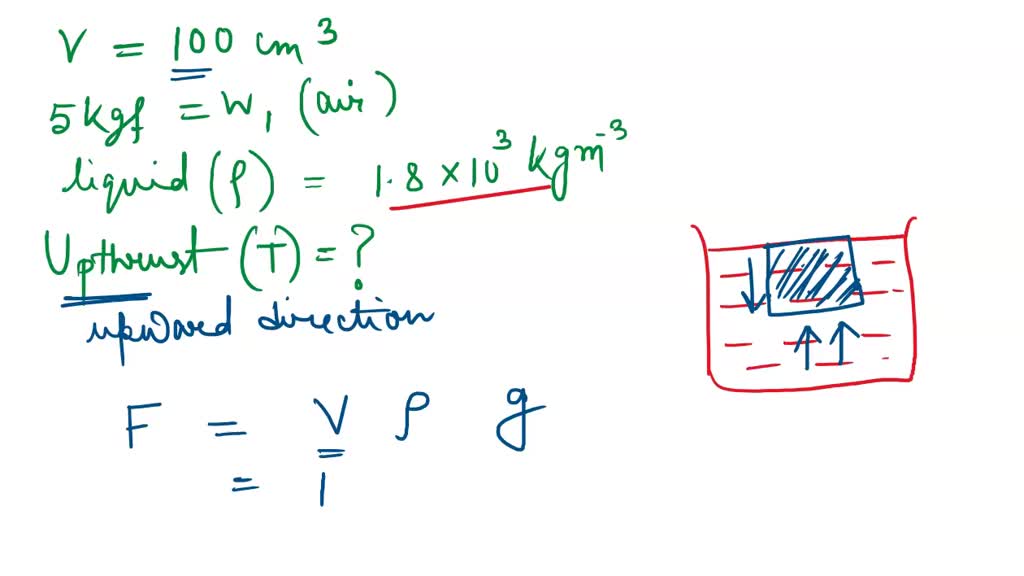 V = 100 cm³
5 kgf = W₁ (air)
liquid (ρ) = 1.8 × 10³ kgm⁻³
Upthrust (T) = ?
upward direction
F = V ρ g
= 1